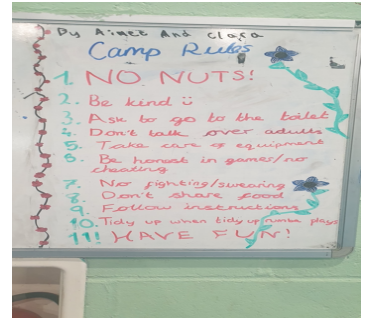 By Aimee And Clara
Camp Rules
1. NO NUTS!
2. Be kind ü
3. Ask to go to the toilet
4. Don't talk over adults
5. Take care of equipment
6. Be honest in games/no
cheating
7. No fighting/swearing
8. Don't share food
9. Follow instructions
10. Tidy up when tidy up numba plays
11! HAVE FUN!